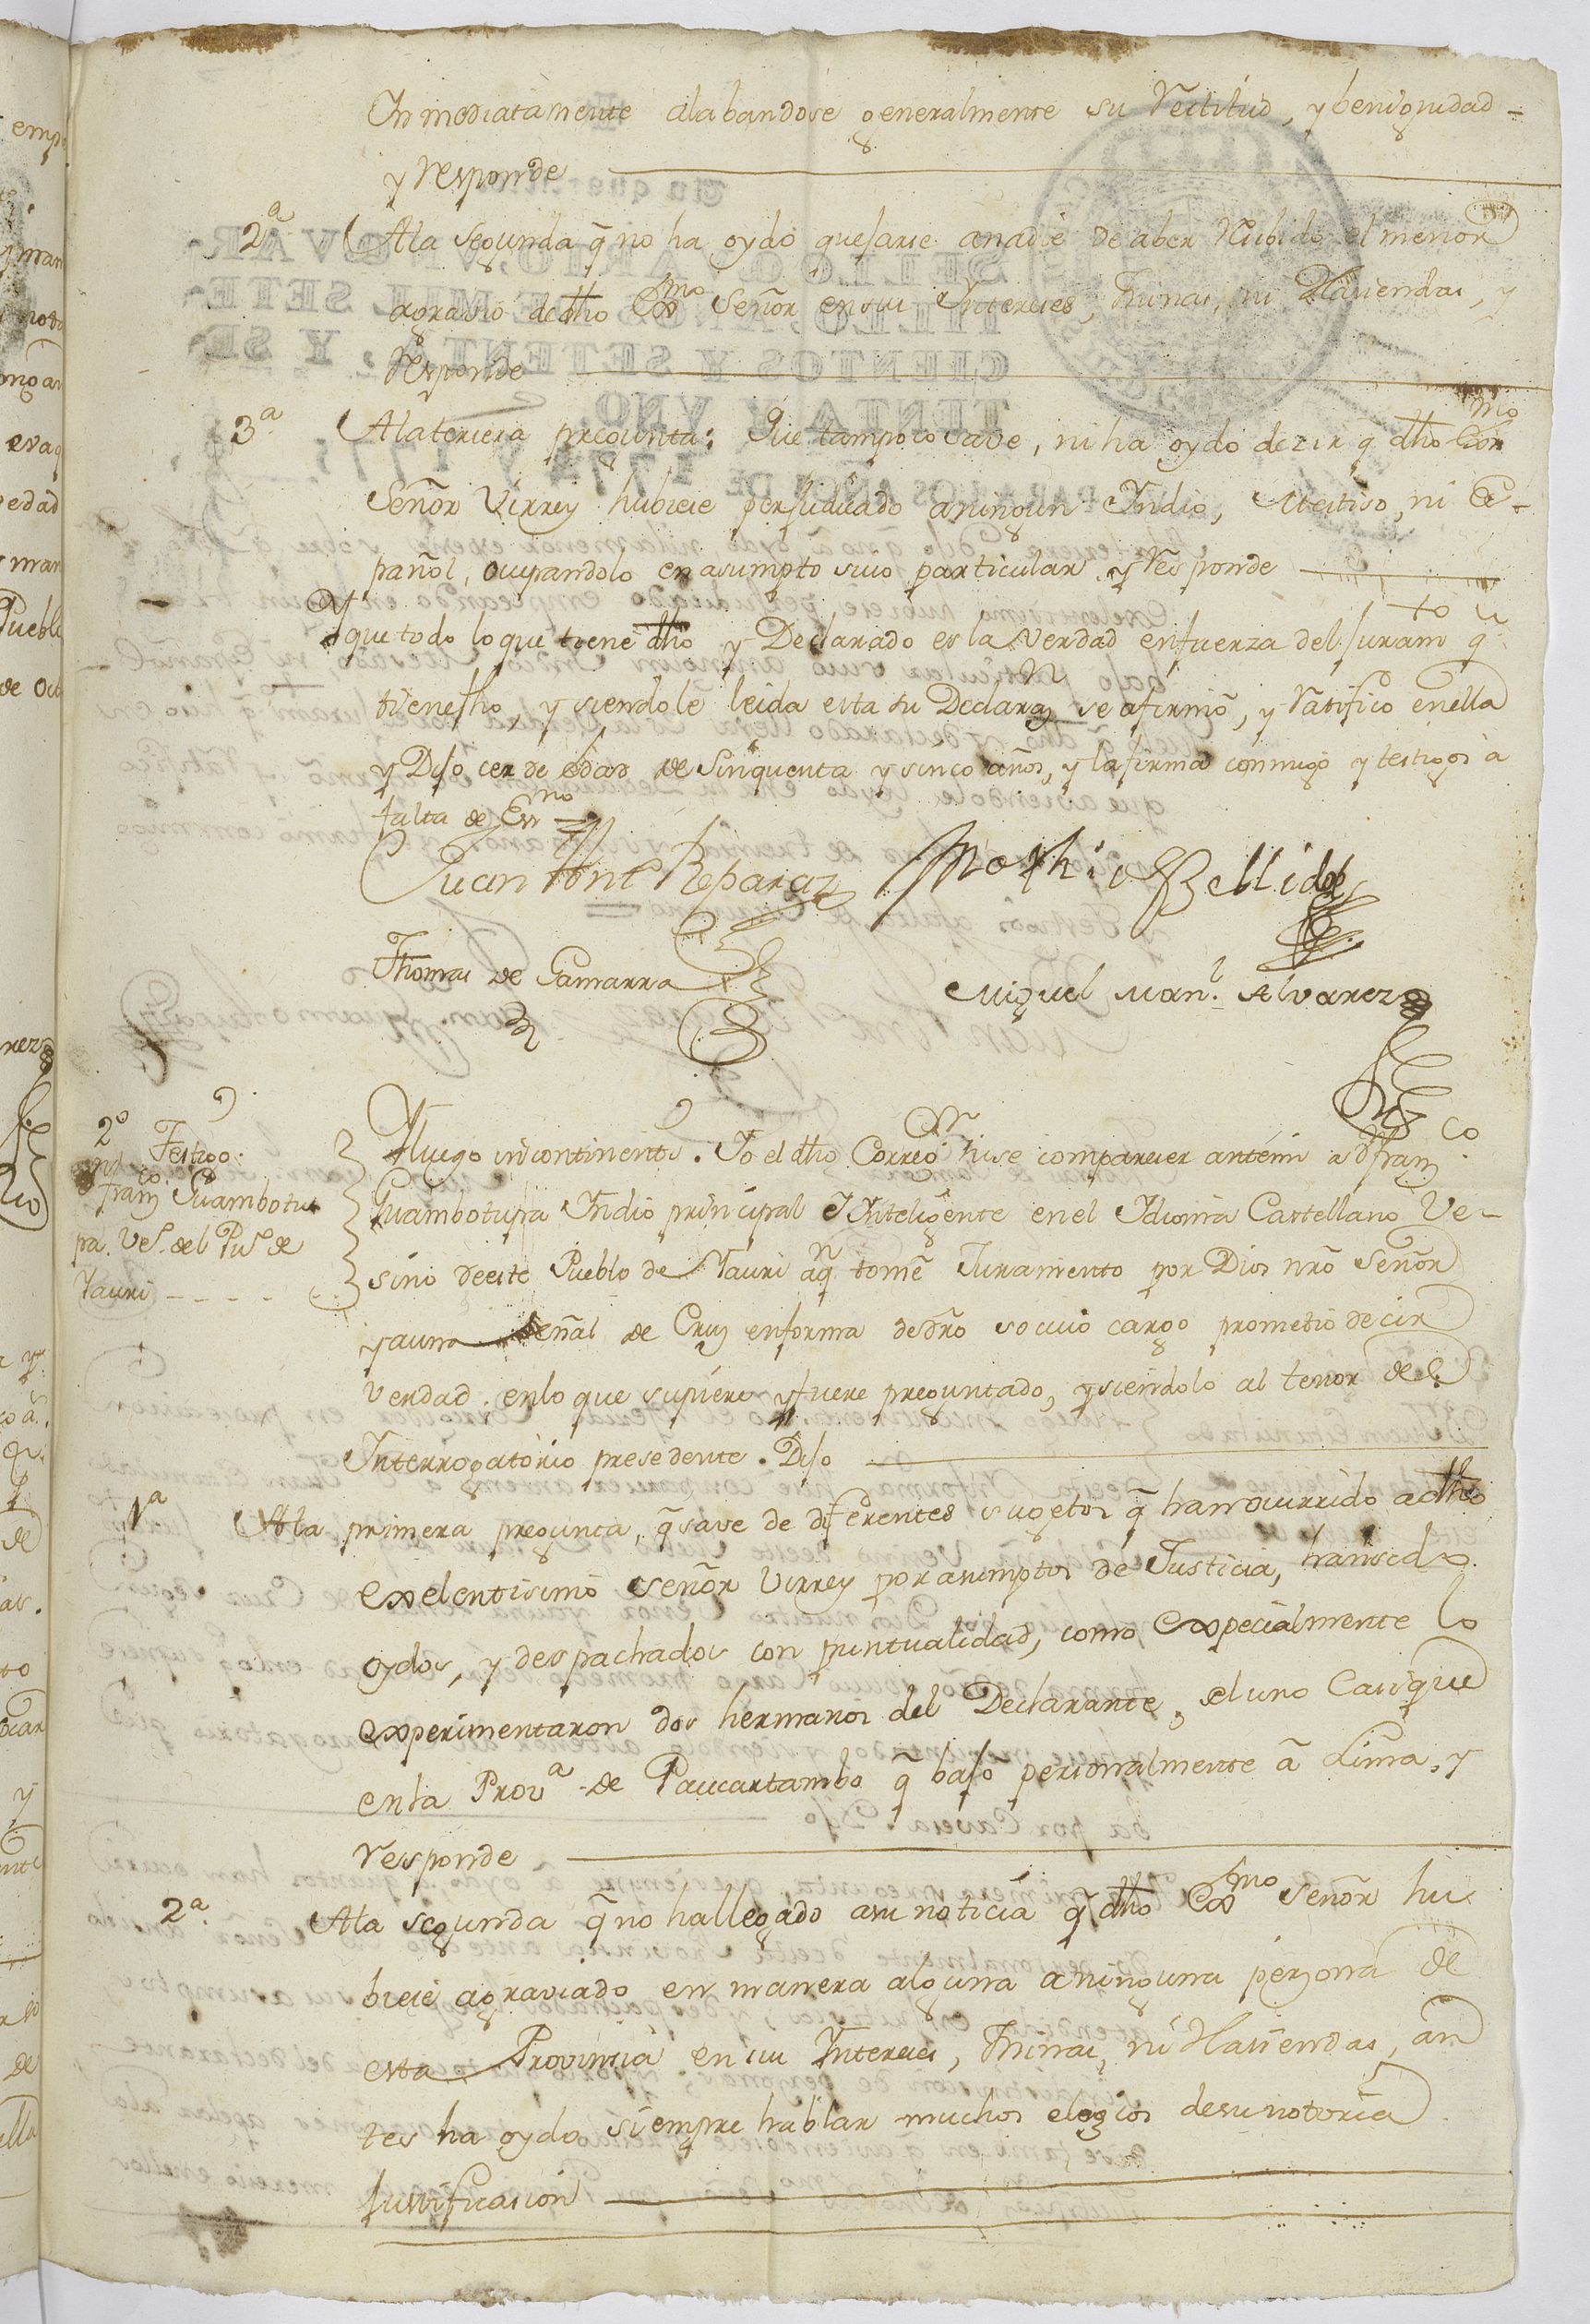 Inmediatamente alabandose generalmente su rectitud, y benignidad -
y responde
2ª A la segunda q̃ no ha oydo quejarse anadie de aber recibido el menor
agravio de dho Exmo Señor en sus Intereses, Minas, ni Haciendas, y
responde
3ª A la tercera pregunta: Que tampoco save, ni ha oydo dezir q dho Exmo
Señor Virrey hubiese perjudicado a ningun Indio, Mestiso, ni Es-
pañol, ocupandolo en asumpto suio particular y responde
Y que todo lo que tiene dho y Declarado es la verdad en fuerza del Juramto q
tiene fho, y siendole leida esta su Declaraz.n se afirmó, y ratifico en ella
y Dijo cer de edad de Sinquenta y sinco años, y la firmó conmigo y testigos à
falta de Essno
Juan Antto Reparaz Mathias Bellido
Thomas de Gamarra Miguel Manl. Alvarez
2º Testigo.
Dn
Franco Guambotu
pa. Veso. del Puo de
Yauri - - - -
Y luego incontinenti. Yo el dho Corregor hise comparecer ante mi a D Franco
Guambotupa Indio principal Inteligente en el Idioma Castellano Ve-
sino de este Pueblo de Yauri aqn tomé Juramento por Dios nrõ Señor
y a una Señal de Cruz en forma de dro so cuio cargo prometió decir
verdad en lo que supiere y fuere preguntado, y siendolo al tenor del
Interrogatorio presedente. Dijo
1ª A la primera pregunta, q̃ save de diferentes sugetos q̃ han ocurrido a dho
Exelentisimo Señor Virrey por asumptos de Justicia, han sido
oydos, y despachados con puntualidad, como expecialmente lo
experimentaron dos hermanos del Declarante, el uno Casique
en la Prova de Paucartambo q̃ bajó personalmente à Lima, y
responde
2ª A la segunda q̃ no ha llegado a su noticia q̃ dho Exmo Señor hu-
biese agraviado en manera alguna a ninguna persona de
esta Provinsia en sus Intereses, Minas, ni Haciendas, an
tes ha oydo siempre hablar muchos elogios de su notoria
Justificasion